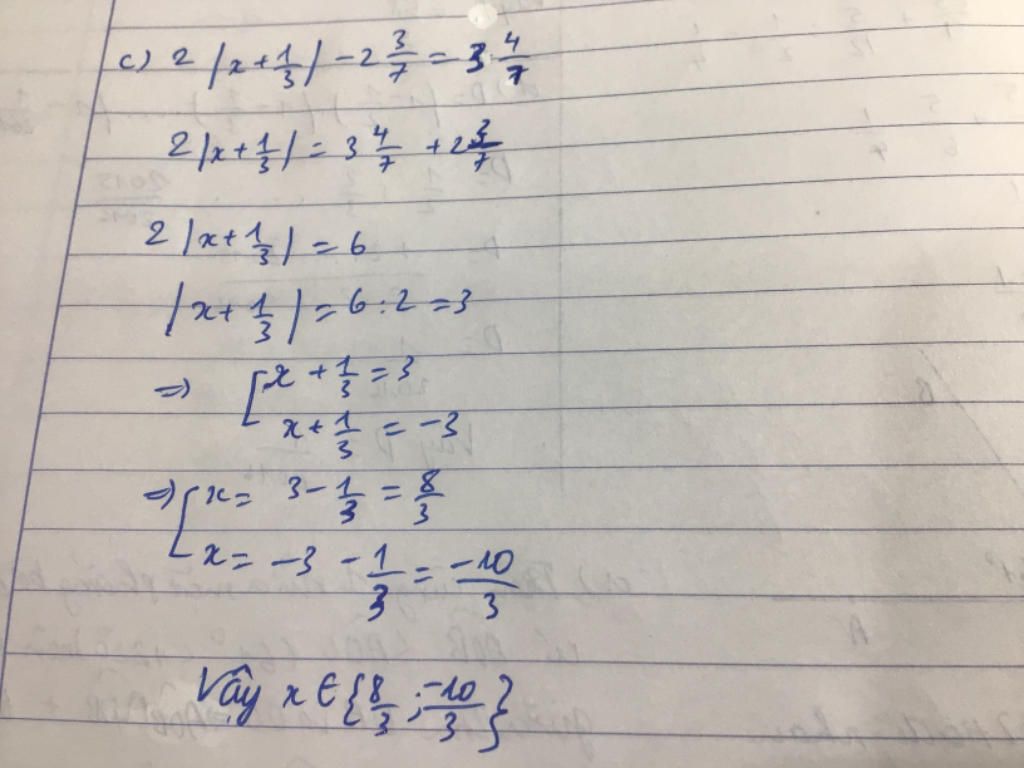 c) 2 |x + 1/3| - 2 3/7 = 3 4/7
2 |x + 1/3| = 3 4/7 + 2 3/7
2 |x + 1/3| = 6
|x + 1/3| = 6 : 2 = 3
=> [ x + 1/3 = 3
x + 1/3 = -3
=> [ x = 3 - 1/3 = 8/3
x = -3 - 1/3 = -10/3
Vậy x ∈ {8/3 ; -10/3}